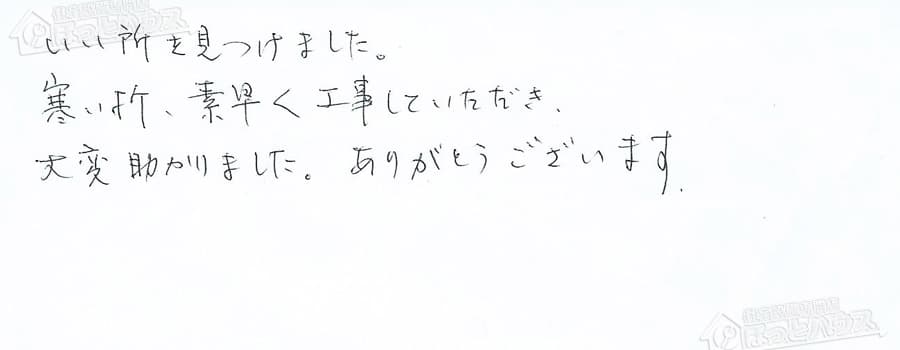 いい所を見つけました。
寒い折、素早く工事していただき、
大変助かりました。ありがとうございます.
ほっとハウス